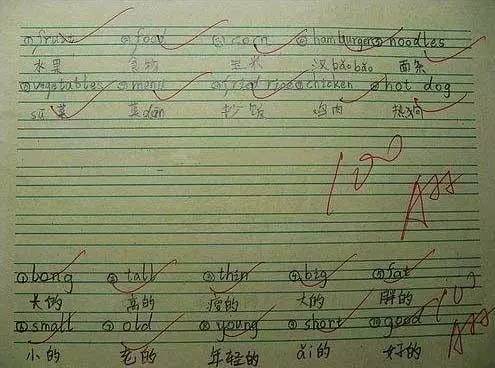 ①fruit ②food ③corn ④hamburger ⑤noodles
水果 食物 玉米 汉bǎobǎo 面条
⑥vegetables ⑦menu ⑧fried rice ⑨chicken ⑩hot dog
sū菜 菜dān 炒饭 鸡肉 热狗
100
A++
①long ②tall ③thin ④big ⑤fat
长的 高的 瘦的 大的 胖的
⑥small ⑦old ⑧young ⑨short ⑩good
小的 老的 年轻的 ǎi的 好的
100
A++